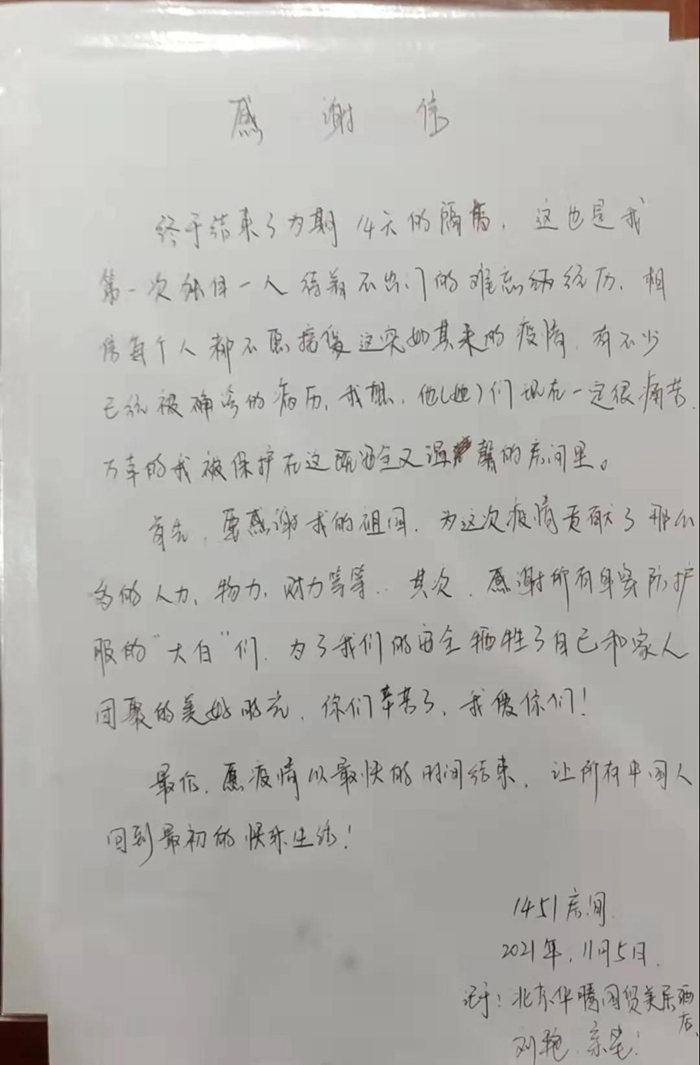 感谢信
终于结束了为期14天的隔离，这也是我
第一次独自一人待着不出门的难忘的经历，相
信每个人都不愿接受这突如其来的疫情，有不少
已经被确诊的病历，我想，他(她)们现在一定很痛苦，
万幸的我被保护在这既安全又温馨的房间里。
首先，要感谢我的祖国，为这次疫情贡献了那么
多的人力、物力、财力等等..其次，感谢所有身穿防护
服的“大白”们，为了我们的安全牺牲了自己和家人
团聚的美好时光，你们辛苦了，我爱你们！
最后，愿疫情以最快的时间结束，让所有中国人
回到最初的快乐生活！
1451房间
2021年，11月5日.
记于：北京华腾国贸美居酒店
刘艳 亲笔！